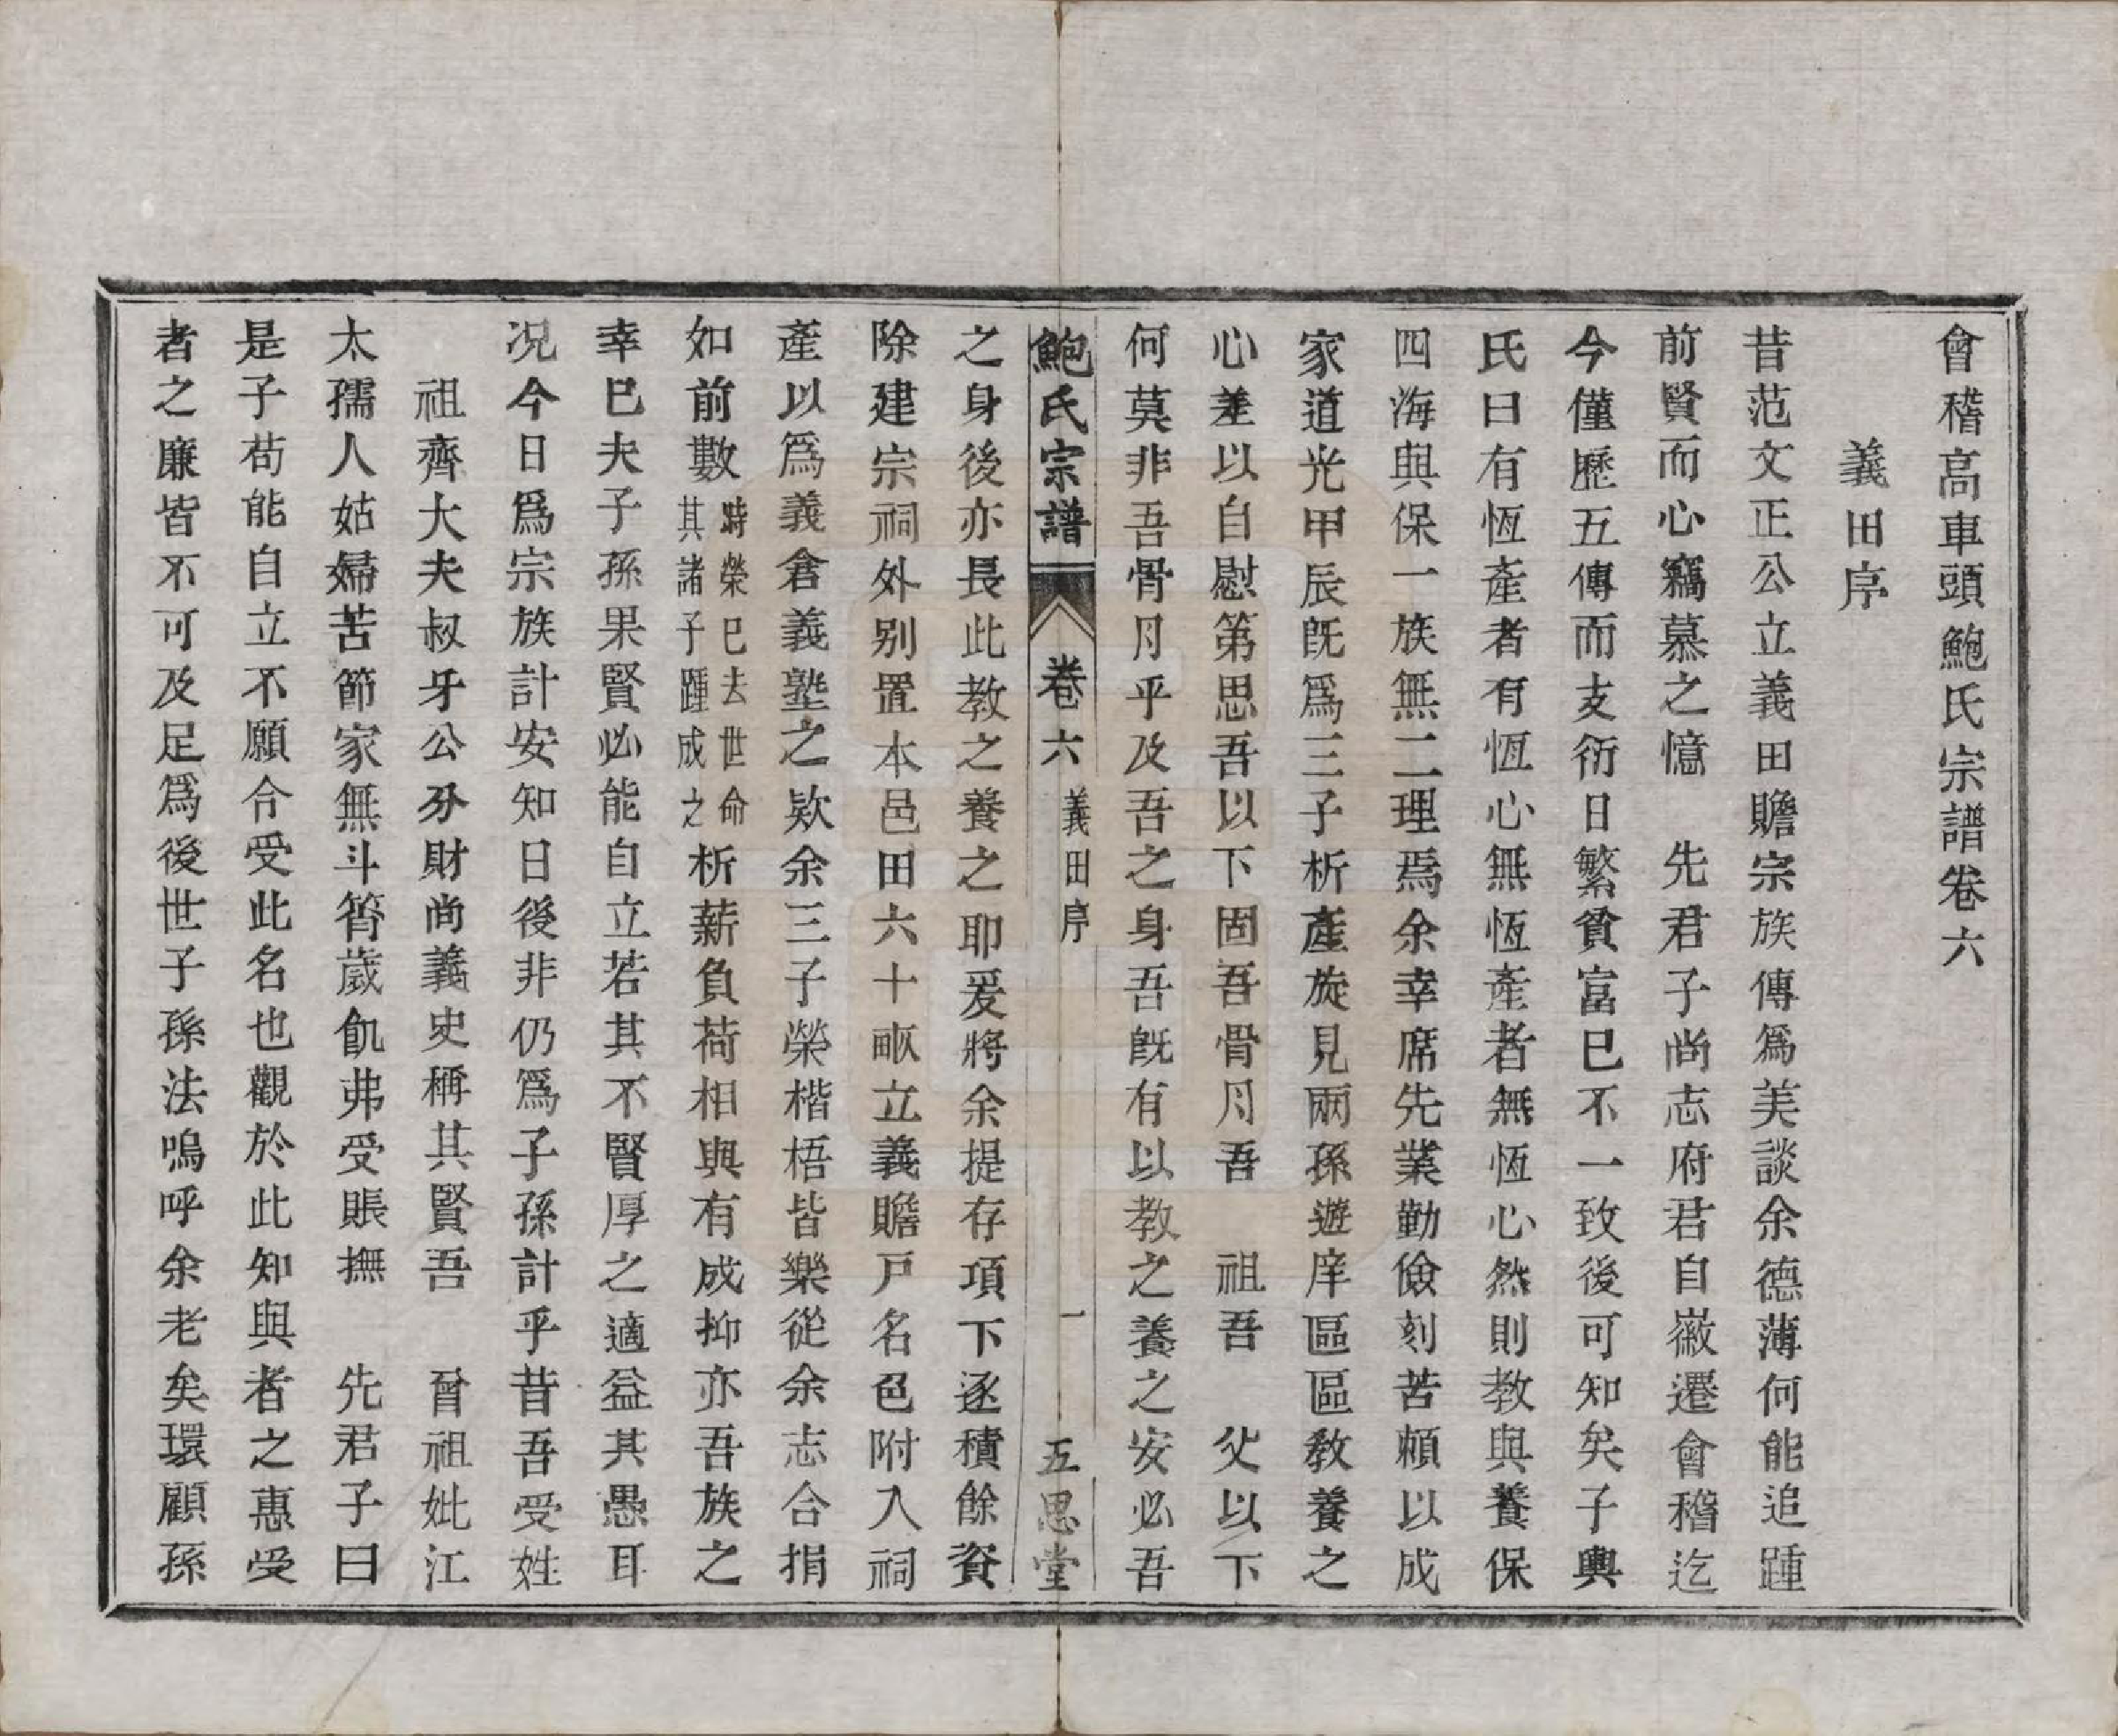 會稽高車頭鮑氏宗譜卷六
義田序
昔范文正公立義田贍宗族傳爲美談余德薄何能追踵
前賢而心竊慕之憶　先君子尚志府君自徽遷會稽迄
今僅歷五傳而支衍日繁貧富已不一致後可知矣子輿
氏曰有恆產者有恆心無恆產者無恆心然則教與養保
四海與保一族無二理焉余幸席先業勤儉刻苦頼以成
家道光甲辰旣爲三子析產旋見兩孫遊庠區區教養之
心差以自慰第思吾以下固吾骨月吾　祖吾　父以下
何莫非吾骨月乎及吾之身吾旣有以教之養之安必吾
鮑氏宗譜　卷六　義田序　一　五思堂
之身後亦長此教之養之耶爰將余提存項下逐積餘資
除建宗祠外别置本邑田六十畝立義贍戸名邑附入祠
產以爲義倉義塾之欵余三子榮楷梧皆樂從余志合捐
如前數時榮已去世命其諸子踵成之析薪負荷相與有成抑亦吾族之
幸已夫子孫果賢必能自立若其不賢厚之適益其愚耳
况今日爲宗族計安知日後非仍爲子孫計乎昔吾受姓
祖齊大夫叔牙公分財尚義史稱其賢吾　曾祖妣江
太孺人姑婦苦節家無斗筲歲飢弗受賬撫　先君子曰
是子苟能自立不願令受此名也觀於此知與者之惠受
者之廉皆不可及足爲後世子孫法嗚呼余老矣環顧孫